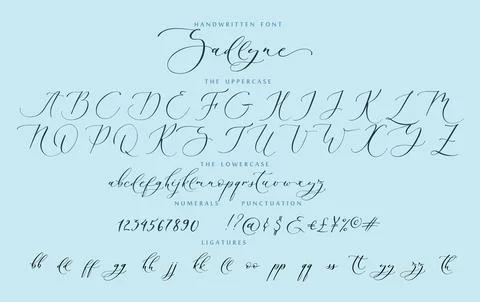 HANDWRITTEN FONT
Sadlyne
THE UPPERCASE
A B C D E F G H I J K L M
N O P Q R S T U V W X Y Z
THE LOWERCASE
abcdefghijklmnopqrstuvwxyz
NUMERALS PUNCTUATION
1234567890 !?@¢$&€£¥%©#
LIGATURES
bb dd ff gg hh jj kk ll oo pp qq ss tt yy zz th